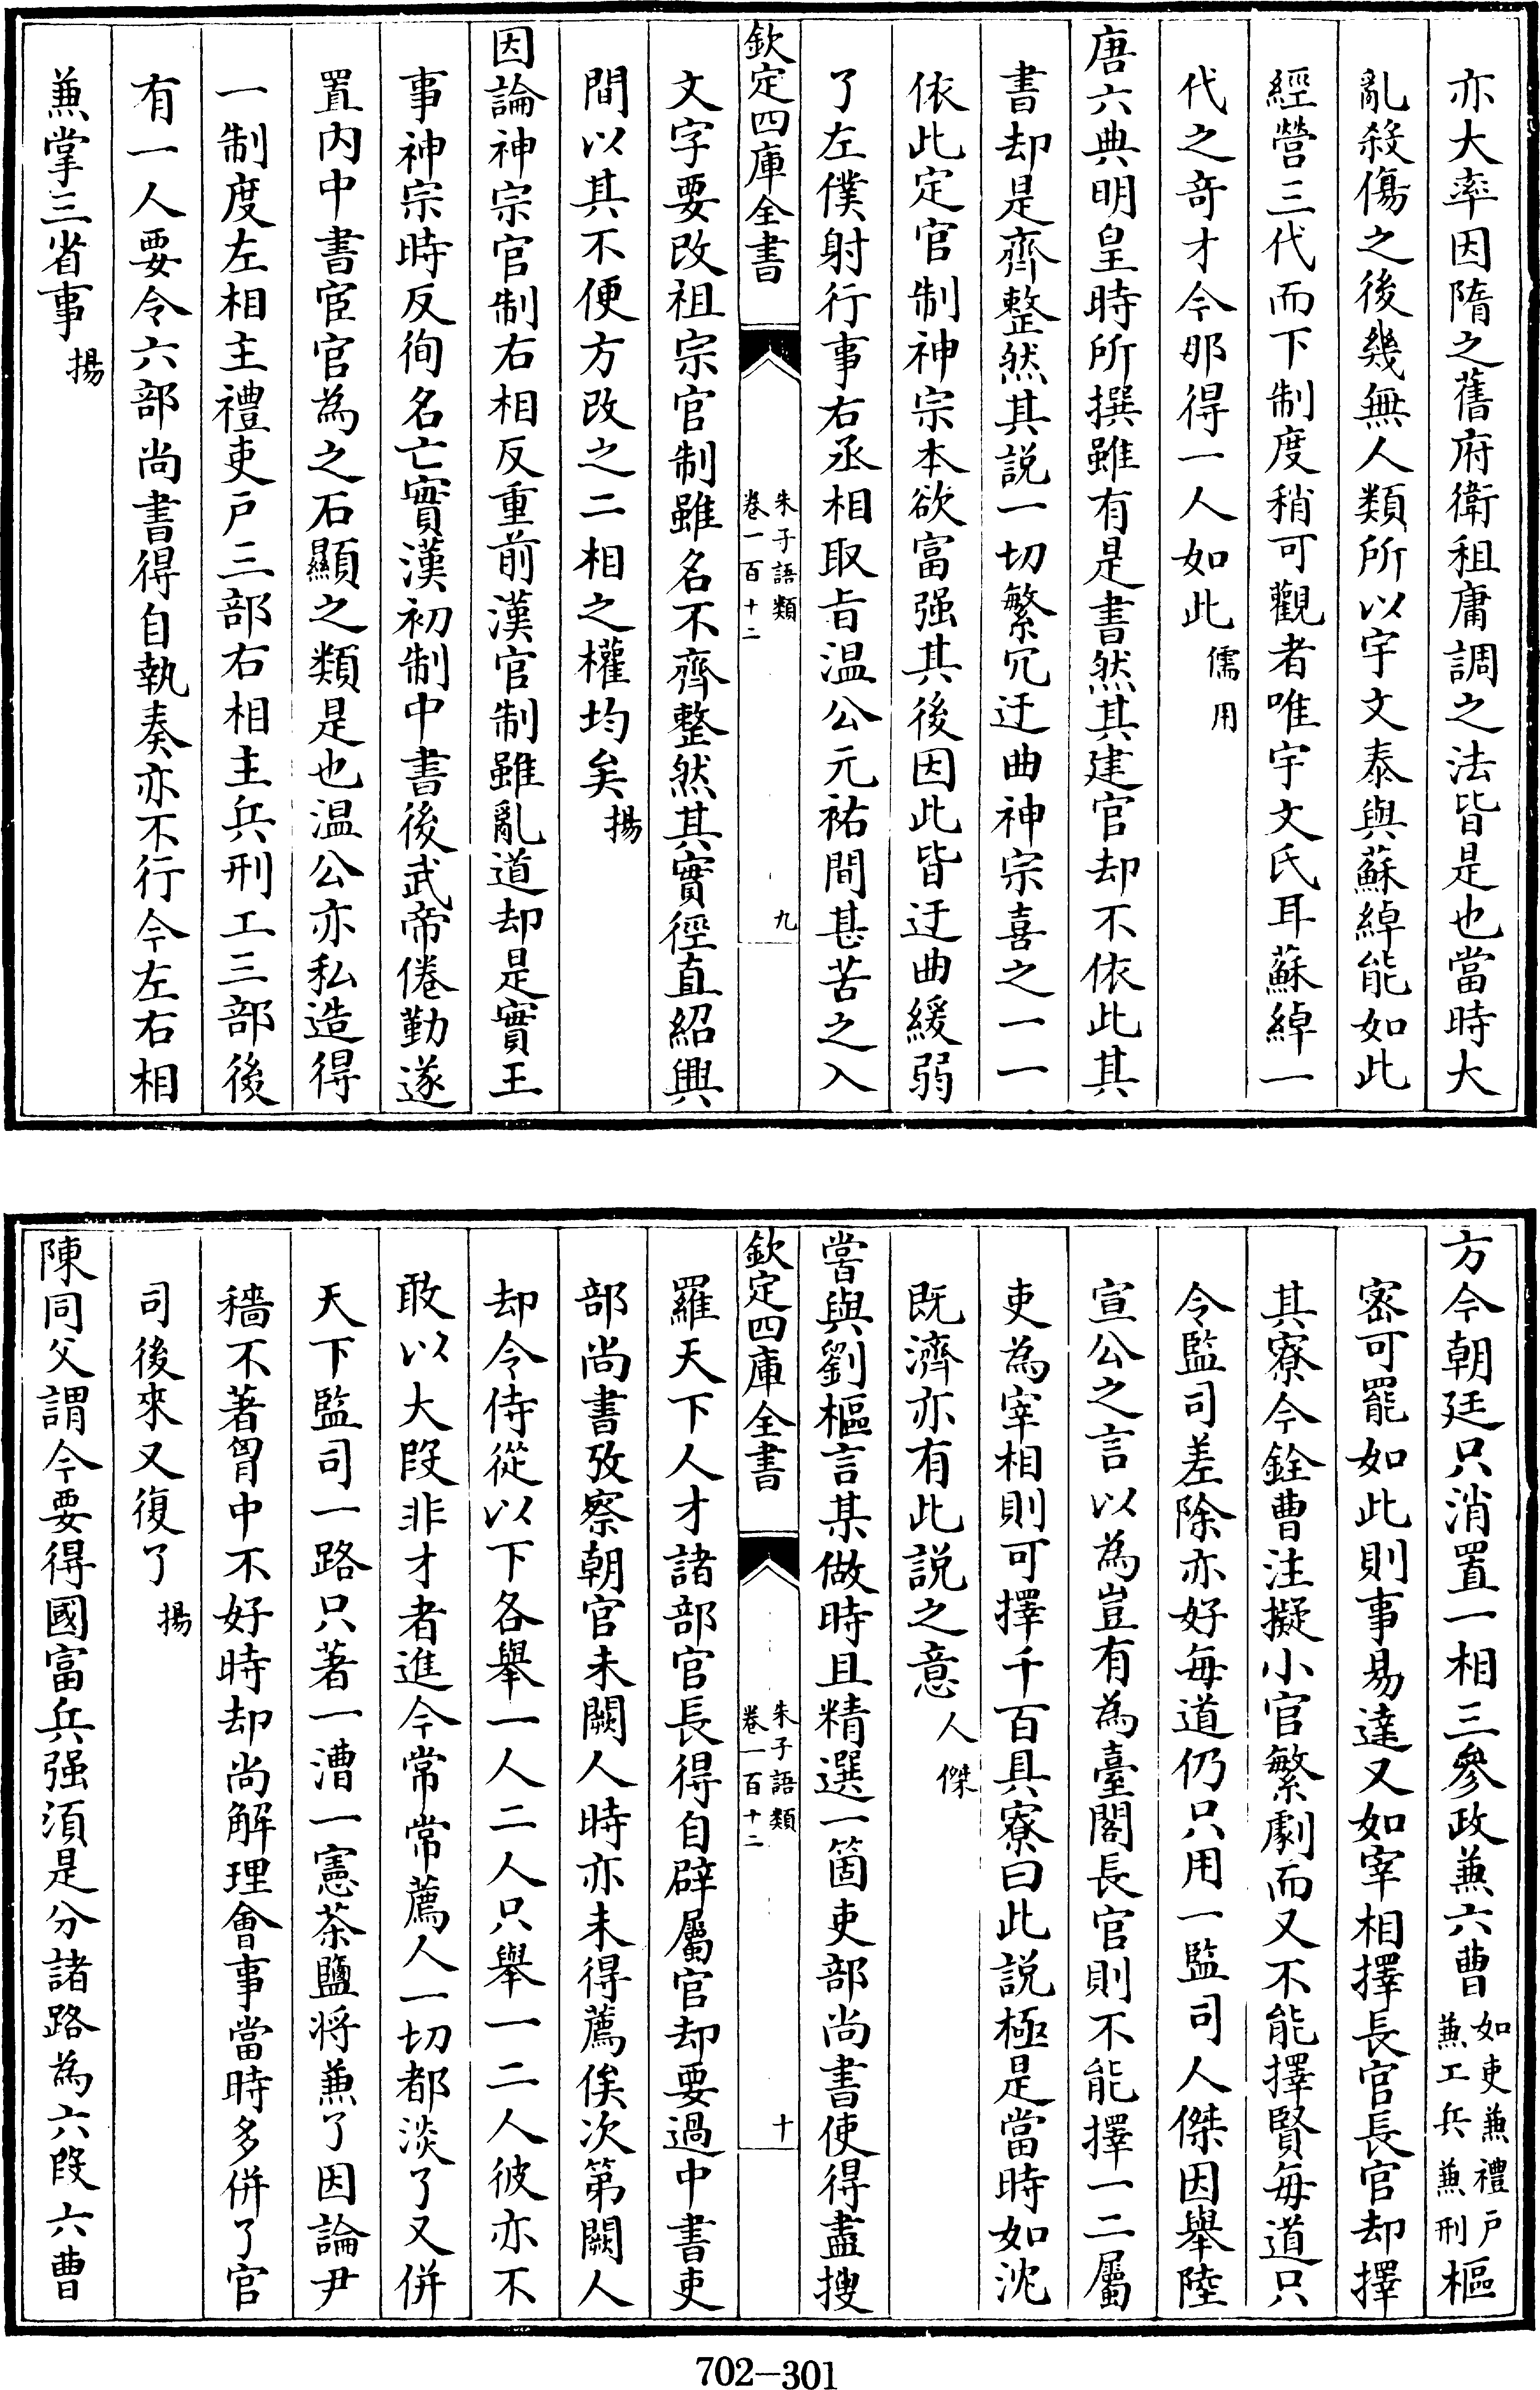 亦大率因隋之舊府衛租庸調之法皆是也當時大
亂殺傷之後幾無人類所以宇文泰與蘇綽能如此
經營三代而下制度稍可觀者唯宇文氏耳蘇綽一
代之奇才今那得一人如此儒用
唐六典明皇時所撰雖有是書然其建官却不依此其
書却是齊整然其説一切繁冗迂曲神宗喜之一一
依此定官制神宗本欲富强其後因此皆迂曲緩弱
了左僕射行事右丞相取旨温公元祐間甚苦之入
欽定四庫全書
朱子語類
卷一百十二
九
文字要改祖宗官制雖名不齊整然其實徑直紹興
間以其不便方改之二相之權均矣揚
因論神宗官制右相反重前漢官制雖亂道却是實王
事神宗時反徇名亡實漢初制中書後武帝倦勤遂
置内中書宦官為之石顯之類是也温公亦私造得
一制度左相主禮吏戶三部右相主兵刑工三部後
有一人要令六部尚書得自執奏亦不行今左右相
兼掌三省事揚
方今朝廷只消置一相三參政兼六曹如吏兼禮戶兼工兵兼刑樞
密可罷如此則事易達又如宰相擇長官長官却擇
其寮今銓曹注擬小官繁劇而又不能擇賢每道只
令監司差除亦好每道仍只用一監司人傑因舉陸
宣公之言以為豈有為臺閣長官則不能擇一二屬
吏為宰相則可擇千百具寮曰此説極是當時如沈
既濟亦有此説之意人傑
嘗與劉樞言某做時且精選一箇吏部尚書使得盡搜
欽定四庫全書
朱子語類
卷一百十二
十
羅天下人才諸部官長得自辟屬官却要過中書吏
部尚書攷察朝官未闕人時亦未得薦俟次第闕人
却令侍從以下各舉一人二人只舉一二人彼亦不
敢以大段非才者進今常常薦人一切都淡了又併
天下監司一路只著一漕一憲茶鹽將兼了因論尹
穡不著胷中不好時却尚解理會事當時多併了官
司後來又復了揚
陳同父謂今要得國富兵强須是分諸路為六段六曹
702-301